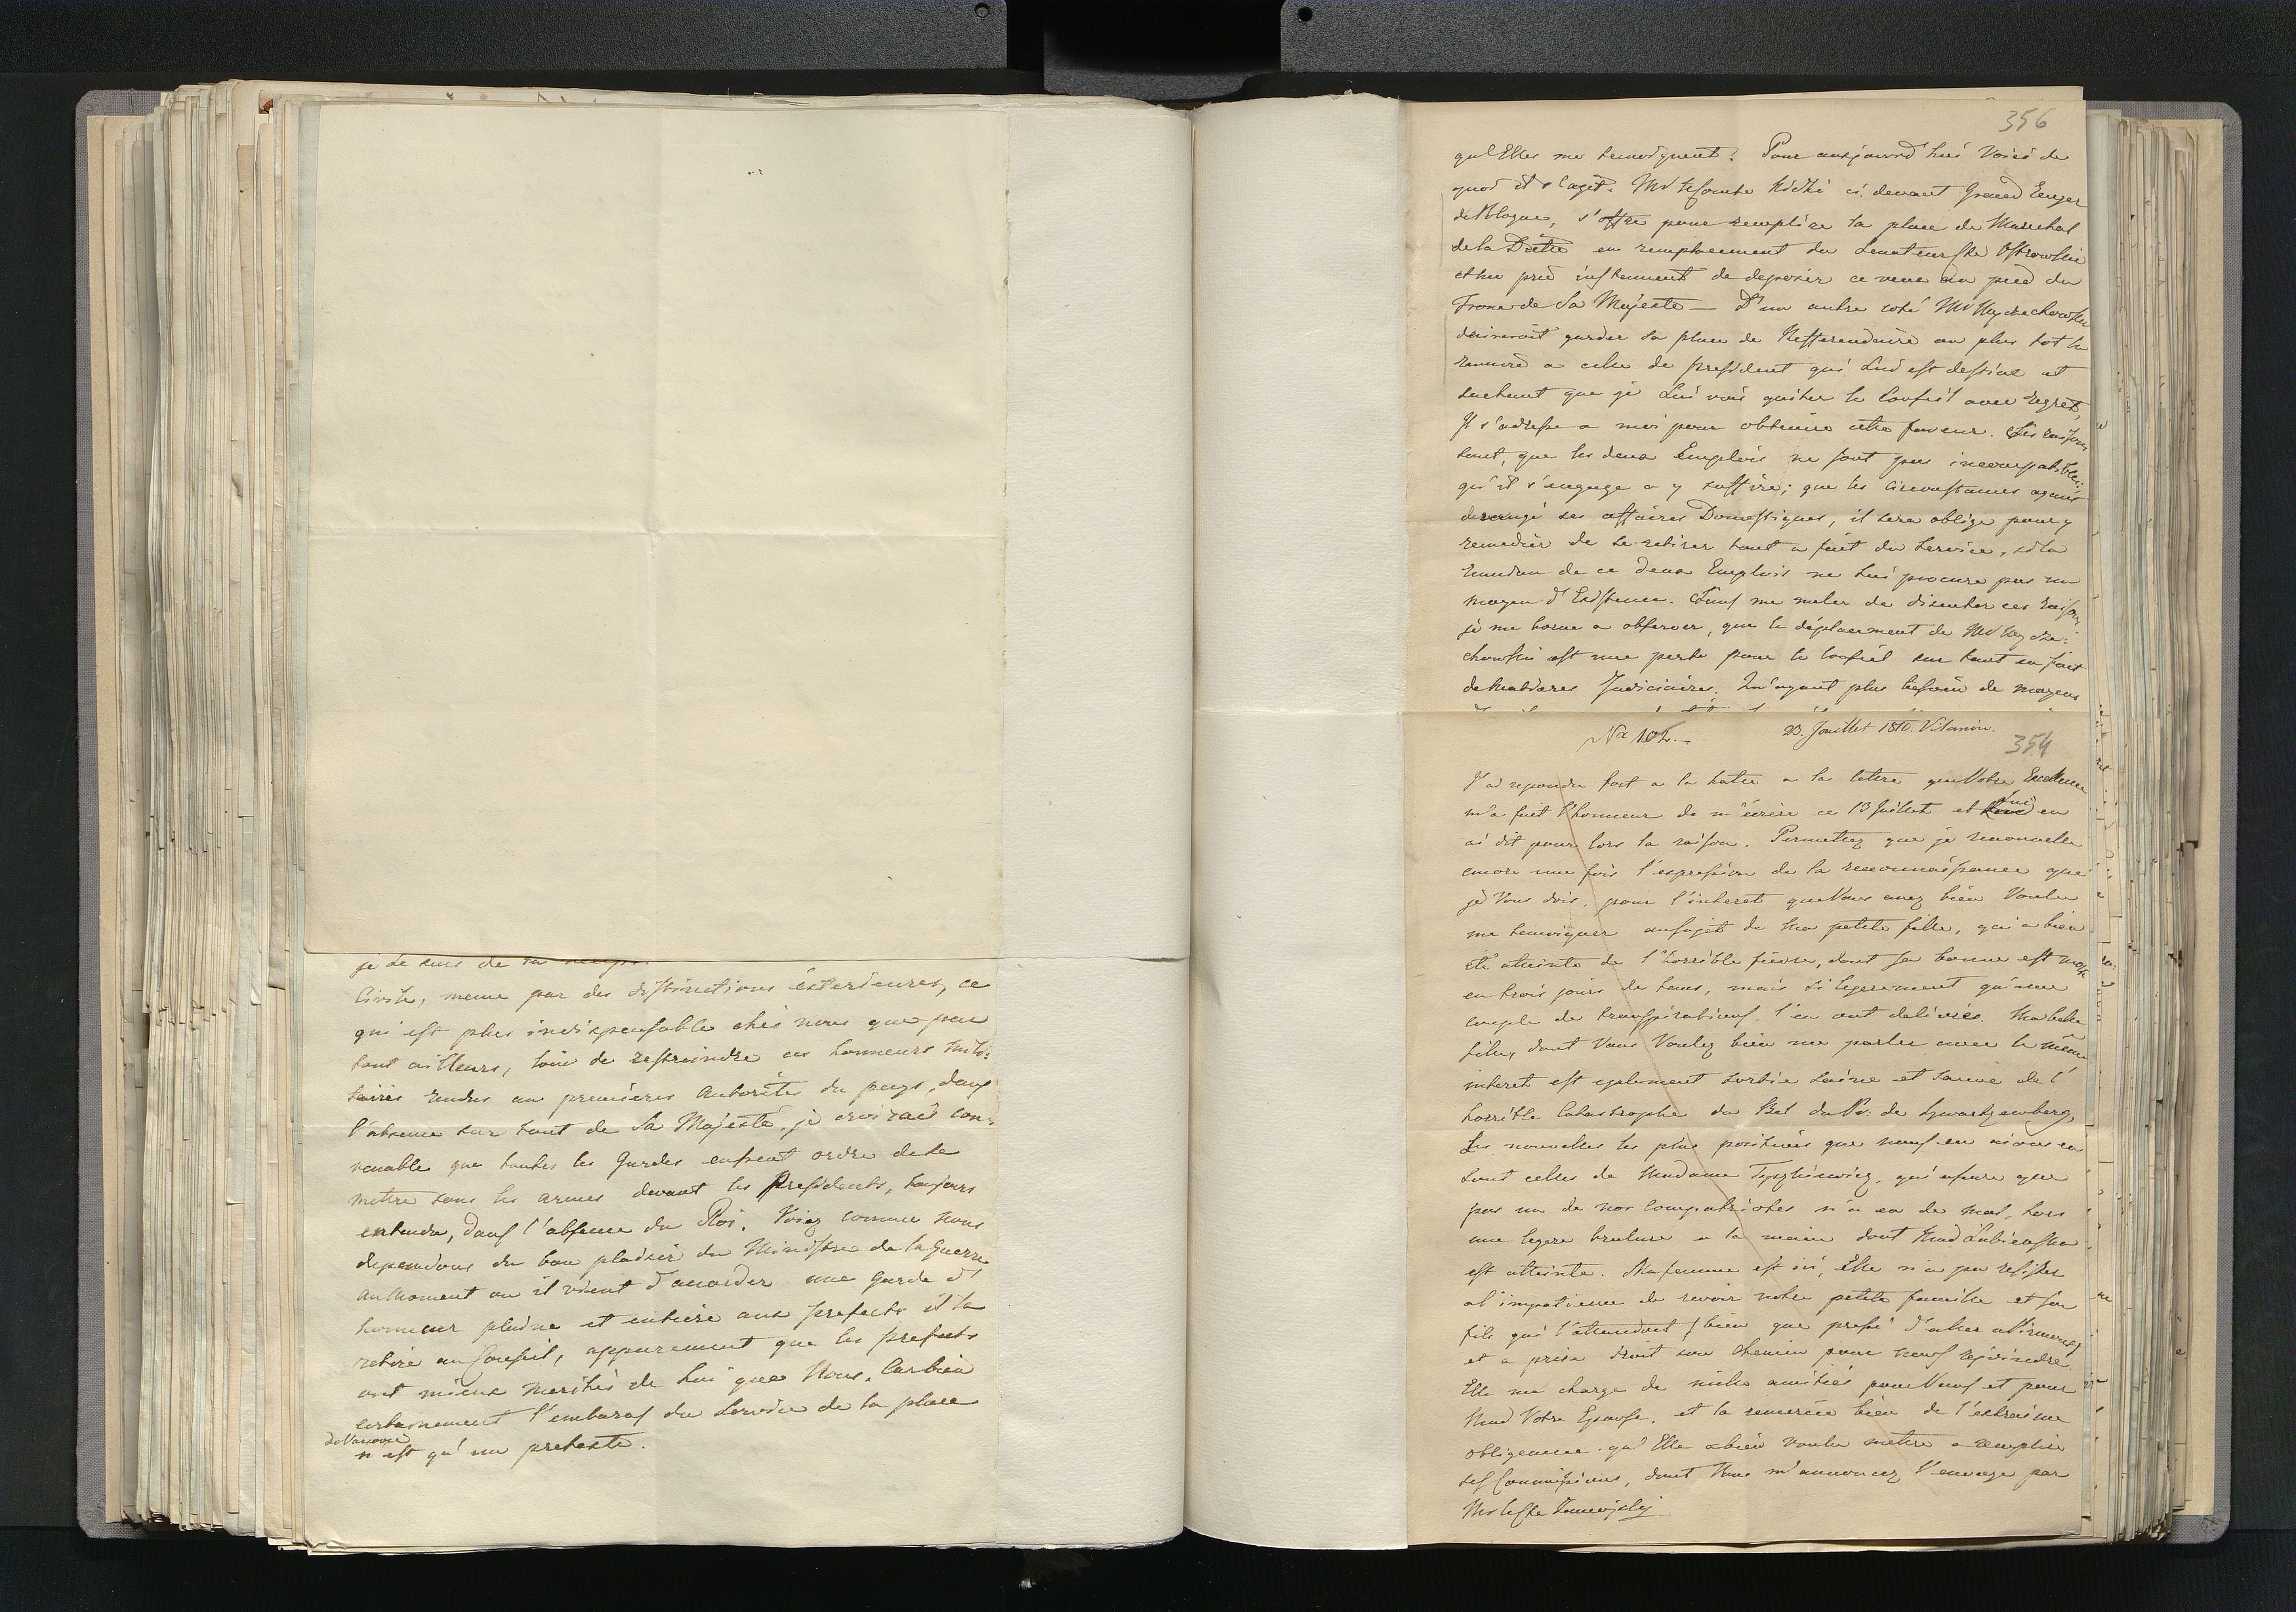 je Le suis de sa
Civile, meme par des distinctions exterieures, ce
qui est plus indispensable chés nous que par
tout ailleurs, loin de restreindre ces honneurs mili=
taires rendus au premieres Autorités du pays, dans
l'absence sur tout de Sa Majesté, je croirais con=
venable que toutes les Gardes eussent ordre de se
mettre sous les armes devant les Presidents, toujours
entendu, dans l'absence du Roi. Voiez comme nous
dependons du bon plaisir du Ministre de la Guerre
au Moment ou il vient d'accorder une Garde d'
honneur pleine et entiere aux prefects il la
retire au Conseil, apparement que les prefects
ont mieux merités de Lui que Nous. Car bien
certainement l'embaras du Service de la place
de Varsovie
n'est qu'un pretexte.
356
qu'Elles me temoignent? Pour aujourd'hui Voici de
quoi il s'agit. Mr le Comte Kicki ci devant Grand Ecuyer
de Pologne, s'offre pour remplire la place de Marechal
de la Diette en remplacement du Senateur Cte Ostrowski
et me prie instament de deposer ce veux au pied du
Trone de Sa Majesté — D'un autre coté Mr
desireroit garder sa place de Refferendaire ou plus tot la
reunire a celle de president qui Lui est destiné et
sachant que je Lui vois quiter le Conseil avec regret,
Il s'adresse a moi pour obtenir cette faveur. Ses raisons
sont, que les deux Emplois ne sont pas incompatibles;
qu'il s'engage a y suffire; que les Circonstances ayant
derangé ses affaires Domestiques, il sera obligé pour y
remedier de se retirer tout a fait du Service, si la
reunion de ce deux Emplois ne Lui procure pas un
moyen d'Existence. Sans me meler de discuter ces raisons
je me borne a observer, que le déplacement de Mr
chowski est une perte pour le Conseil sur tout en fait
de Matieres Judiciaires. N'ayant plus besoin de moyens
No 102.
23. Jouillet 1810. Vilanow.
354
J'ai repondu fort a la hatte a la lettre que Votre Excellence
m'a fait l'honneur de m'écrire ce 13 Juillet et Lui en
ai dit pour lors la raison. Permettez que je renouvelle
encore une fois l'expression de la reconnaissance que
je Vous dois, pour l'interet que Vous avez bien Voulu
me temoigner au sujet de Ma petite fille, qui a bien
été atteinte de l'horrible fievre, dont sa bonne est morte
en trois jours de tems, mais si legerement qu'une
couple de transpirations l'en ont delivrée. Ma belle
fille, dont Vous Voulez bien me parler avec le même
interet est egalement sortie saine et sauve de l'
horrible Catastrophe du Bal du Pr: de Swartzemberg,
Les nouvelles les plus positives que nous en aions eu
sont celles de Madame Tyszkiewicz, qui assure que
pas un de nos compatriotes n'a eu de mal, hors
une legere brulure a la main dont Mad Lubienska
est atteinte. Ma femme est ici, Elle n'a pu resister
a l'impatience de revoir notre petite famille et son
fils qui l'attendent (bien que pressé d'aller a Pirmont)
et a prise droit son chemin pour nous rejoindre.
Elle me charge de mille amitiés pour Vous et pour
Mad Votre Epouse, et la remercie bien de l'extreme
obligeance qu'Elle a bien voulu mettre a remplire
ses Commissions, dont Vous m'annoncez l'envoye par
Mr le Cte Zamoyski